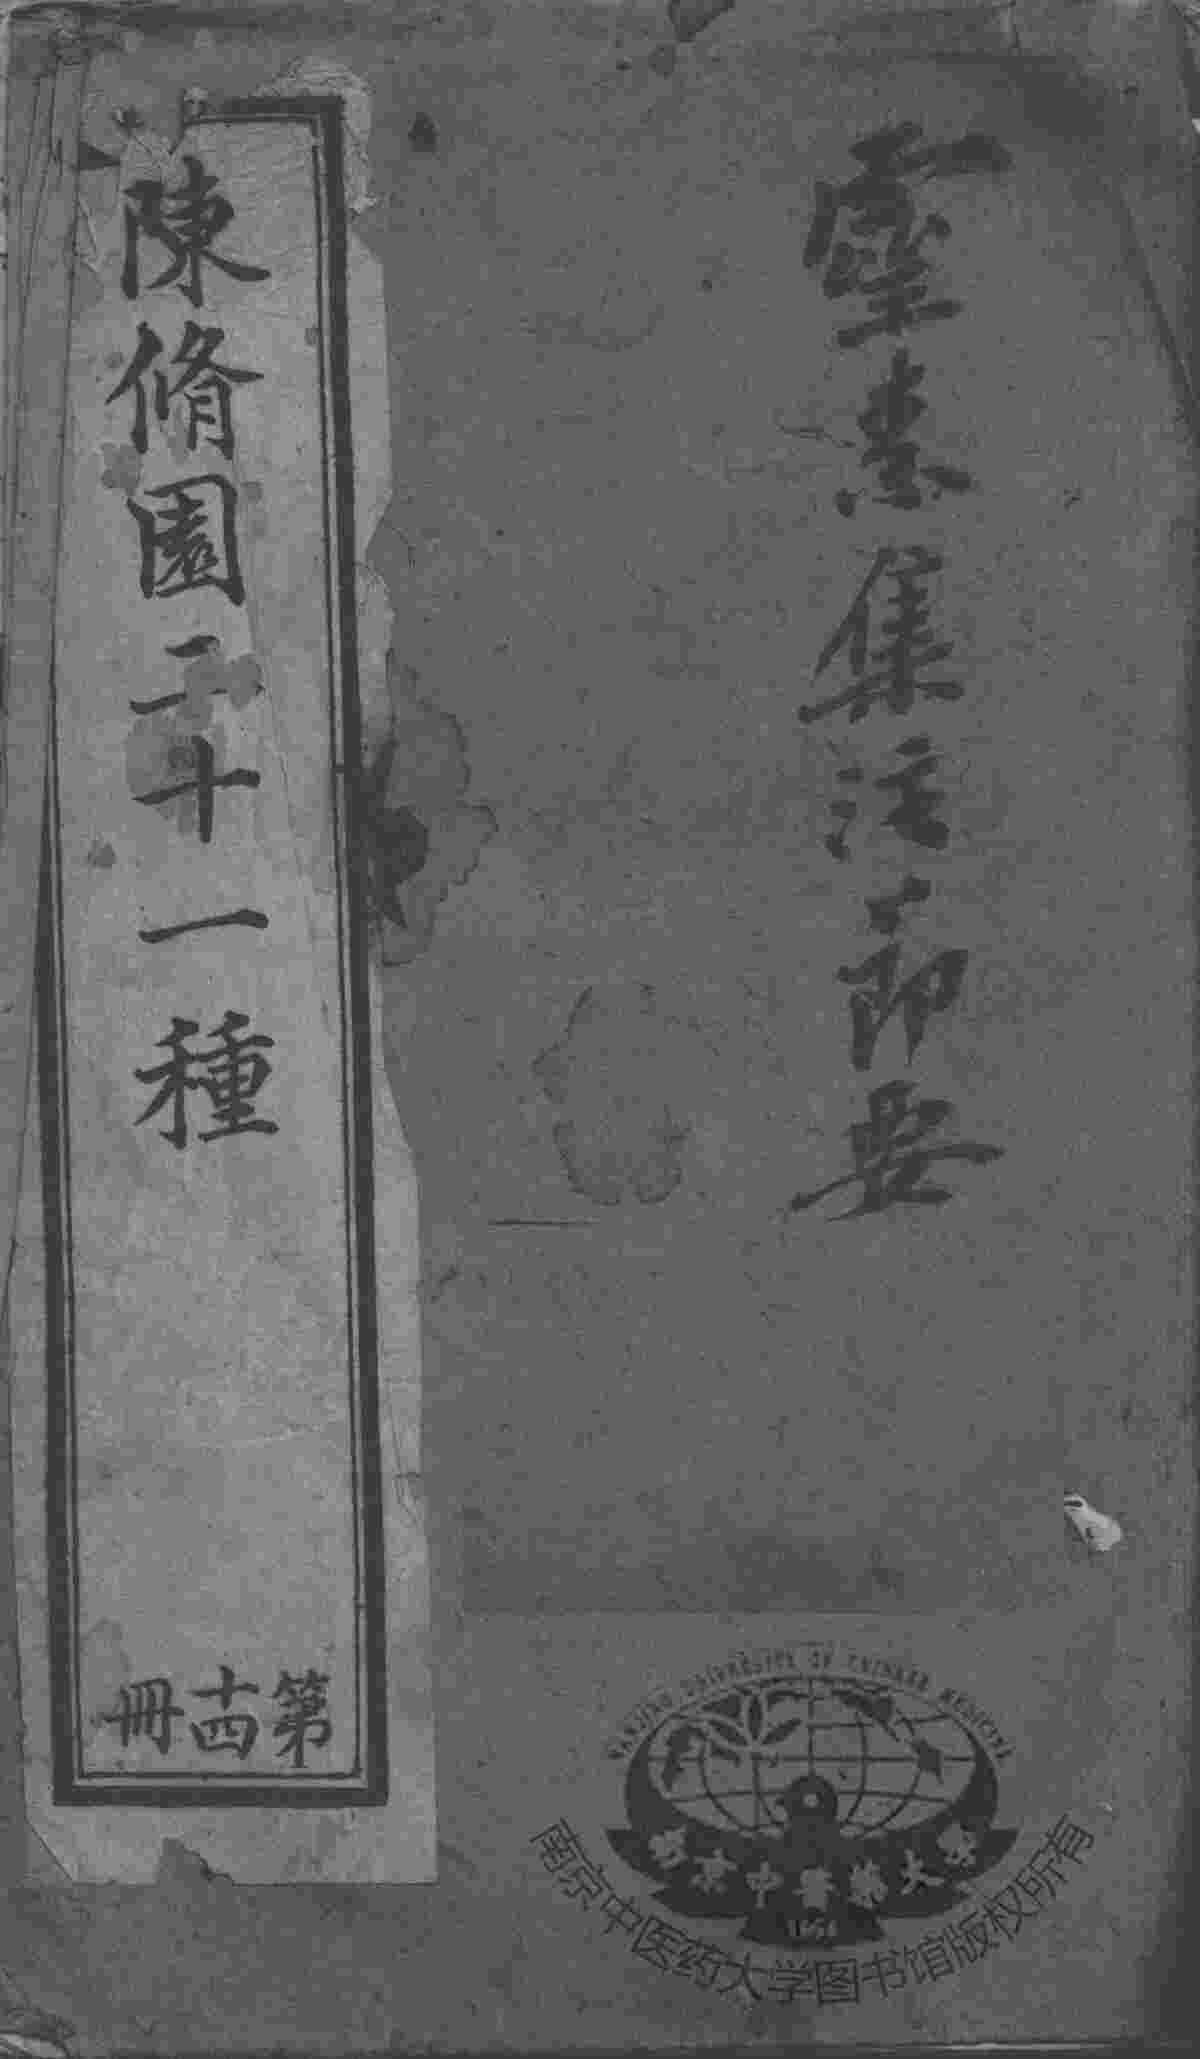 靈素集注節要
陳脩園二十一種
第十四冊
NANJING UNIVERSITY OF CHINESE MEDICINE
南京中醫藥大學
1954
南京中医药大学图书馆版权所有